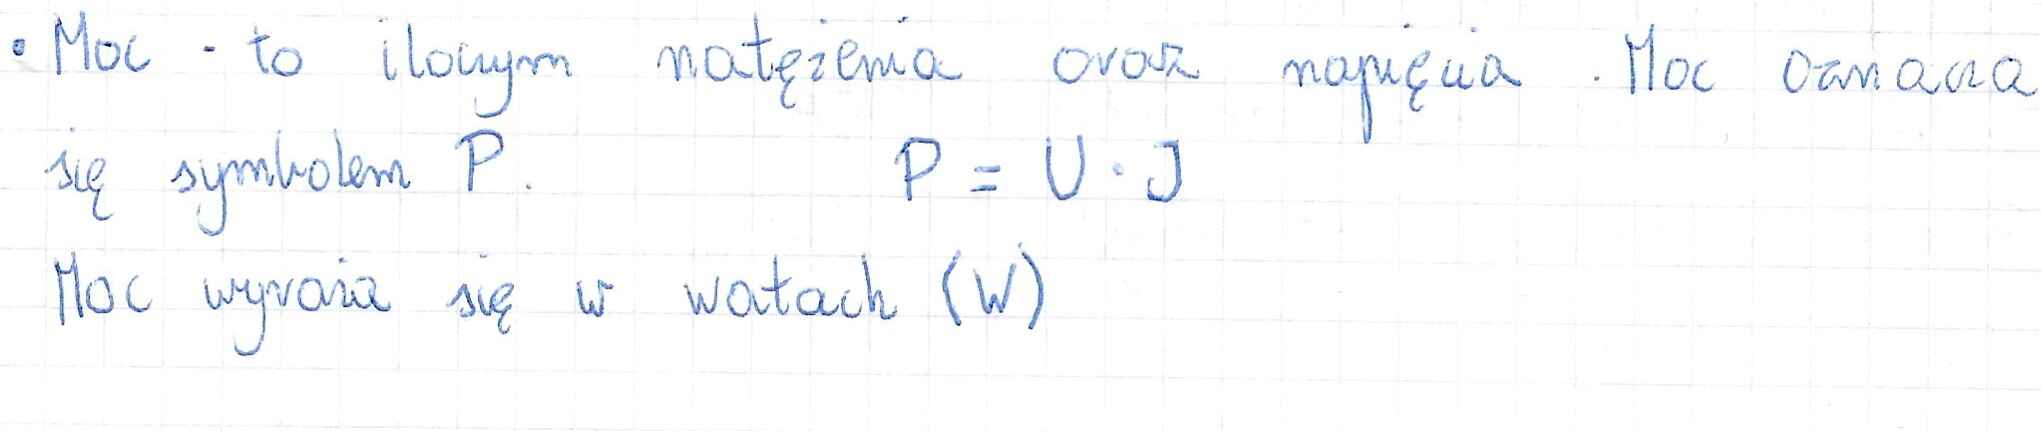 • Moc - to iloczym natężenia oraz napięcia. Moc oznacza
się symbolem P. P = U · J
Moc wyraża się w watach (W)